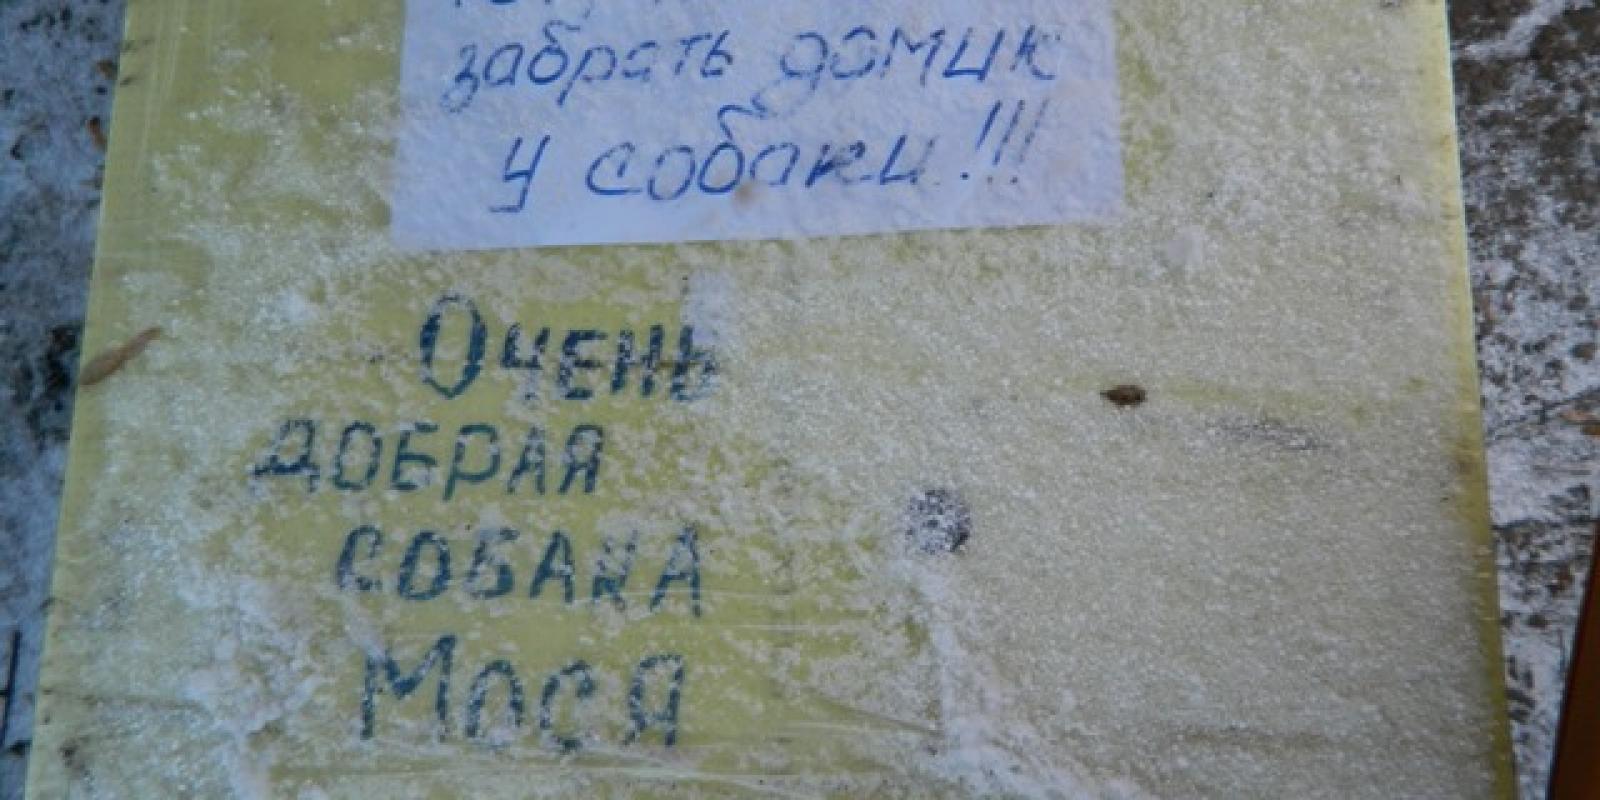 забрать домик
у собаки!!!
Очень
ДОБРАЯ
СОБАКА
Мося